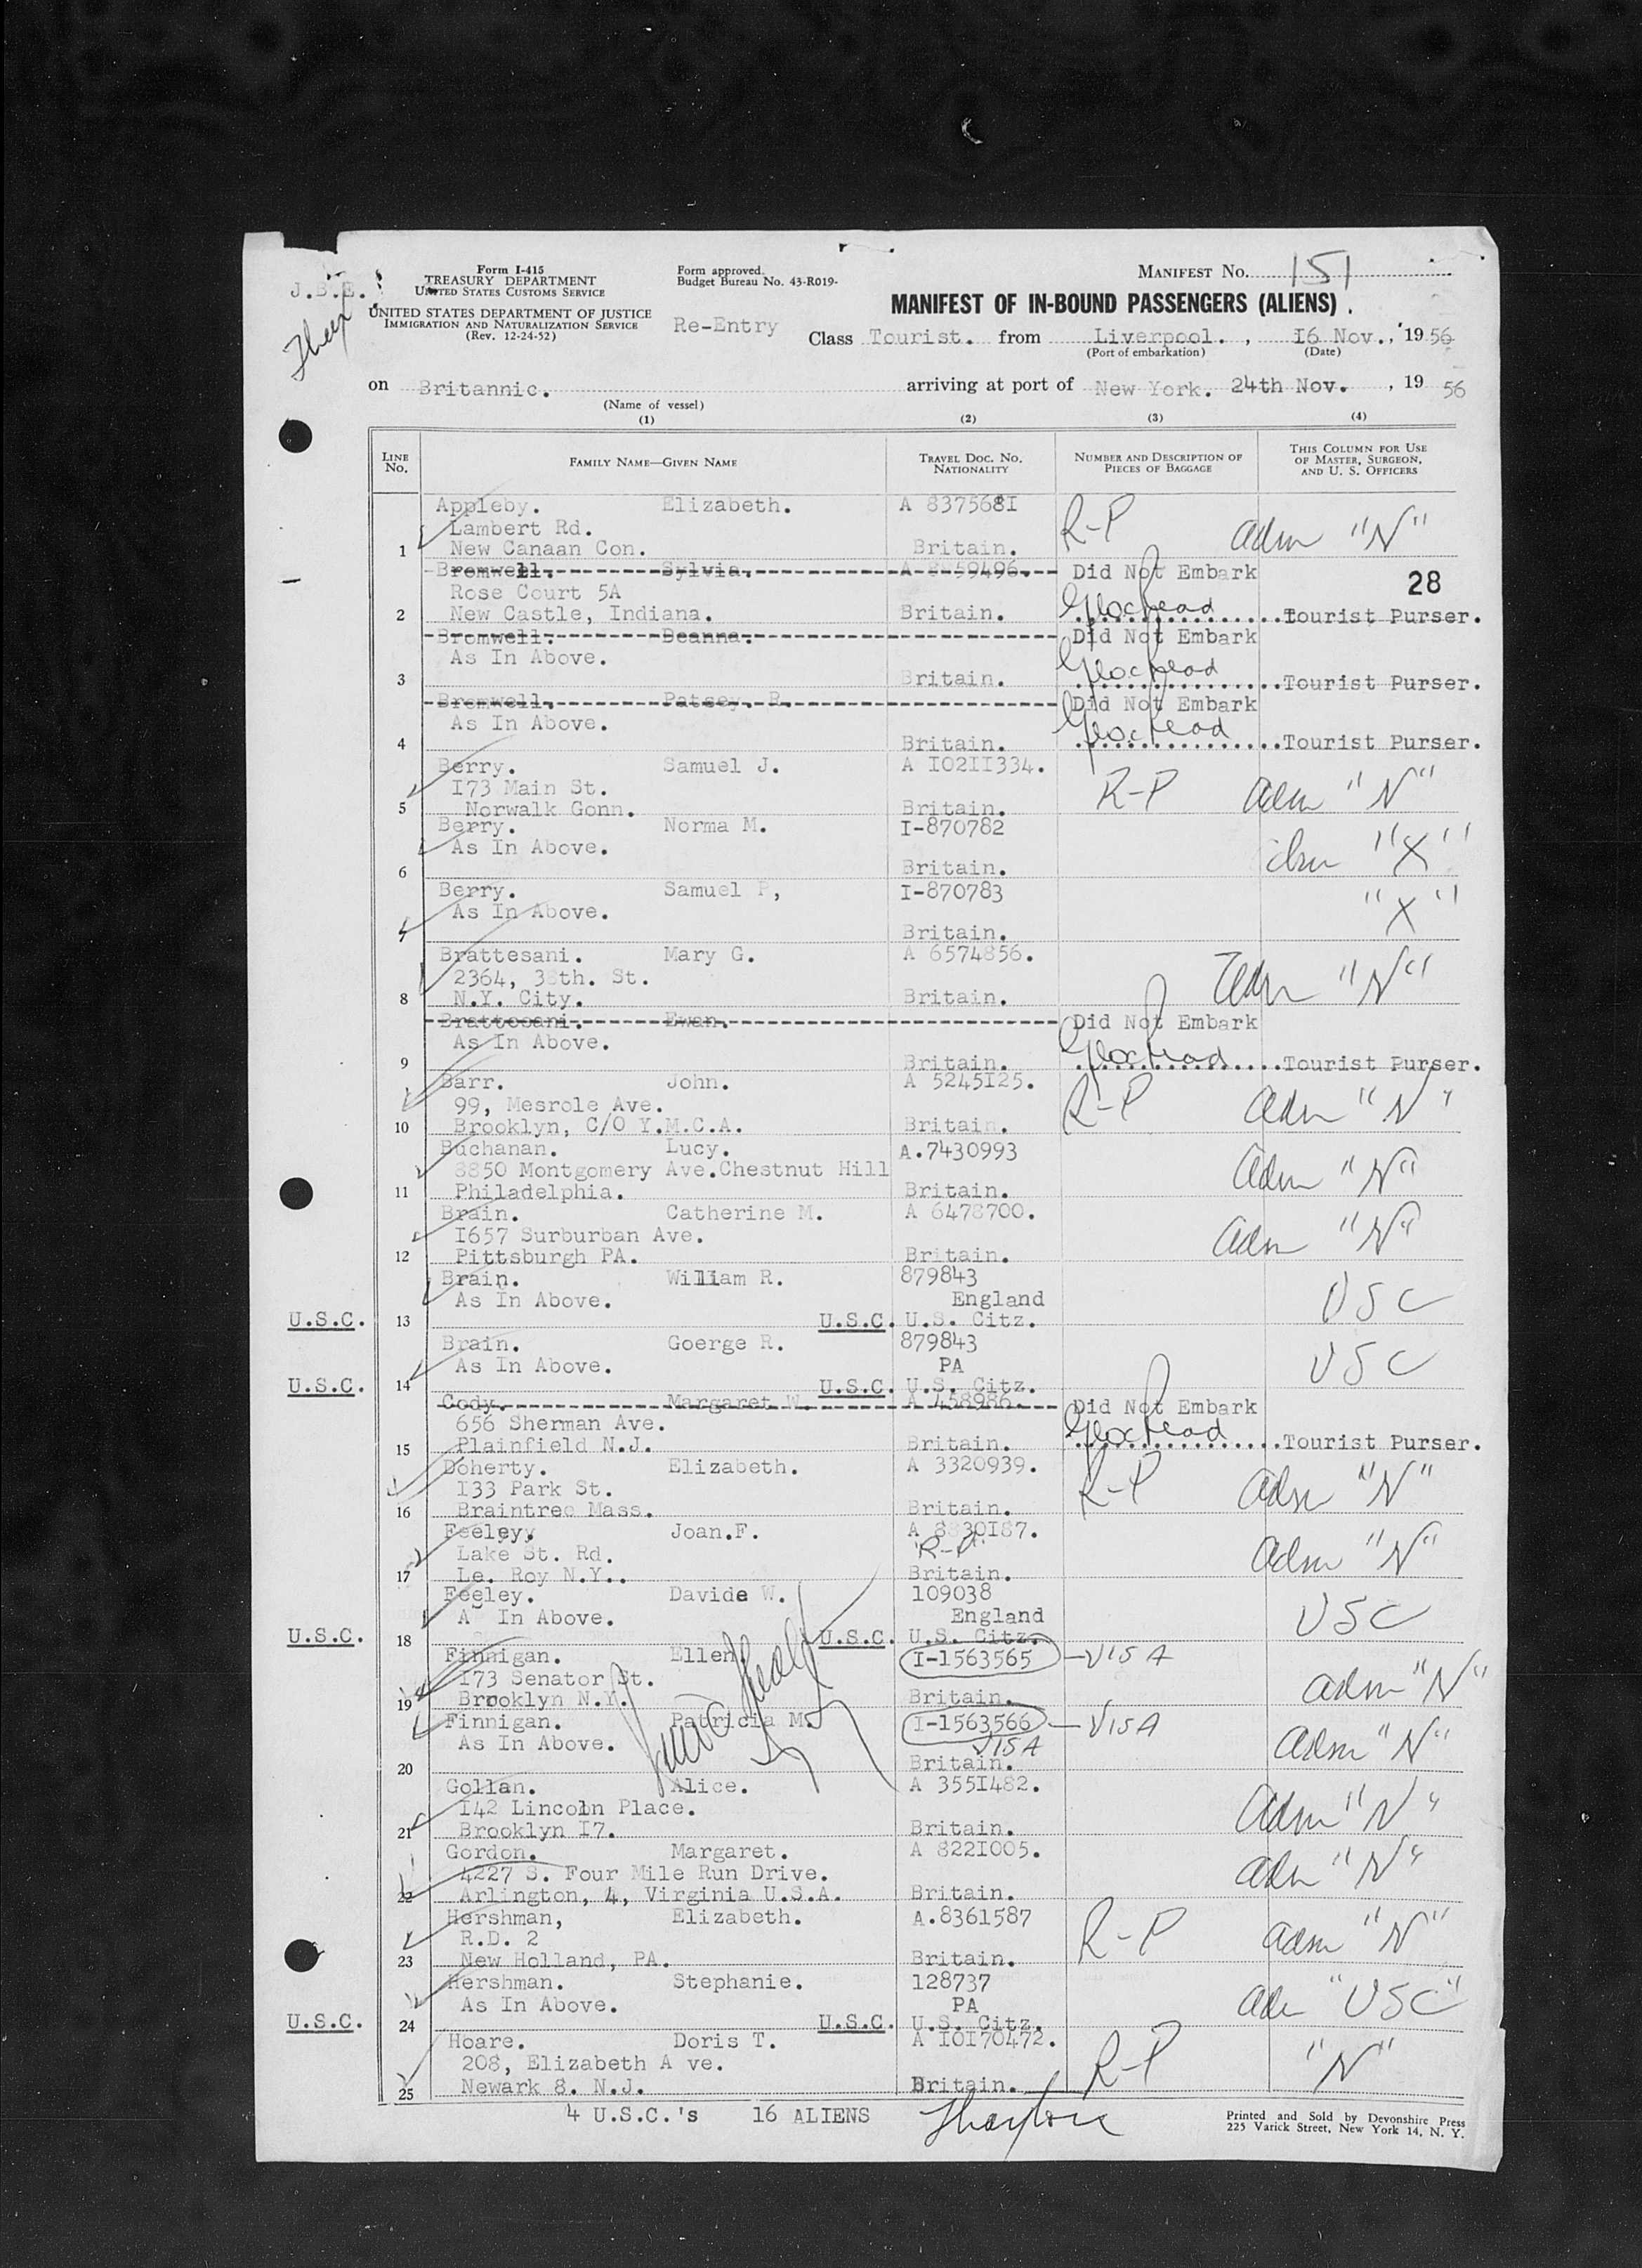 J.B.E.
Form I-415
TREASURY DEPARTMENT
UNITED STATES CUSTOMS SERVICE
UNITED STATES DEPARTMENT OF JUSTICE
IMMIGRATION AND NATURALIZATION SERVICE
(Rev. 12-24-52)
Form approved.
Budget Bureau No. 43-R019-
Re-Entry
MANIFEST NO. 151
MANIFEST OF IN-BOUND PASSENGERS (ALIENS)
Class Tourist. from Liverpool. , 16 Nov., 1956
(Port of embarkation) (Date)
on Britannic. arriving at port of New York. 24th Nov. , 19 56
(Name of vessel)
(1) (2) (3) (4)
LINE NO. FAMILY NAME—GIVEN NAME TRAVEL DOC. NO. NATIONALITY NUMBER AND DESCRIPTION OF PIECES OF BAGGAGE THIS COLUMN FOR USE OF MASTER, SURGEON, AND U. S. OFFICERS
Appleby. Elizabeth. A 8375681 R-P adm "N"
Lambert Rd.
1 New Canaan Con. Britain.
Bromwell. Sylvia. A 8859496. Did Not Embark
Rose Court 5A 28
2 New Castle, Indiana. Britain. Tourist Purser.
Bromwell. Deanna. Did Not Embark
As In Above.
3 Britain. Tourist Purser.
Bromwell. Patsey. R. Did Not Embark
As In Above.
4 Britain. Tourist Purser.
Berry. Samuel J. A I02II334. R-P adm "N"
I73 Main St.
5 Norwalk Gonn. Britain.
Berry. Norma M. I-870782 adm "X"
As In Above.
6 Britain.
Berry. Samuel P, I-870783 "X"
As In Above.
7 Britain.
Brattesani. Mary G. A 6574856. adm "N"
2364, 38th. St.
8 N.Y. City. Britain.
Brattesani. Ewan. Did Not Embark
As In Above.
9 Britain. Tourist Purser.
Barr. John. A 5245I25. R-P adm "N"
99, Mesrole Ave.
10 Brooklyn, C/O Y.M.C.A. Britain.
Buchanan. Lucy. A.7430993 adm "N"
8850 Montgomery Ave.Chestnut Hill
11 Philadelphia. Britain.
Brain. Catherine M. A 6478700. adm "N"
I657 Surburban Ave.
12 Pittsburgh PA. Britain.
Brain. William R. 879843 USC
As In Above. England
U.S.C. 13 U.S.C. U.S. Citz.
Brain. Goerge R. 879843 USC
As In Above. PA
U.S.C. 14 U.S.C. U.S. Citz.
Cody. Margaret W. A 458986. Did Not Embark
656 Sherman Ave.
15 Plainfield N.J. Britain. Tourist Purser.
Doherty. Elizabeth. A 3320939. R-P adm "N"
I33 Park St.
16 Braintree Mass. Britain.
Feeley, Joan.F. A 8830I87. adm "N"
Lake St. Rd. "R-P"
17 Le. Roy N.Y.. Britain.
Feeley. Davide W. 109038 USC
As In Above. England
U.S.C. 18 U.S.C. U.S. Citz.
Finnigan. Ellen I-1563565 — VISA adm "N"
I73 Senator St.
19 Brooklyn N.Y. Britain.
Finnigan. Patricia M. I-1563566 — VISA adm "N"
As In Above. VISA
20 Britain.
Gollan. Alice. A 355I482. adm "N"
I42 Lincoln Place.
21 Brooklyn I7. Britain.
Gordon. Margaret. A 822I005. adm "N"
4227 S. Four Mile Run Drive.
22 Arlington, 4, Virginia U.S.A. Britain.
Hershman, Elizabeth. A.8361587 R-P adm "N"
R.D. 2
23 New Holland, PA. Britain.
Hershman. Stephanie. 128737 adm "USC"
As In Above. PA
U.S.C. 24 U.S.C. U.S. Citz.
Hoare. Doris T. A I0I70472. R-P "N"
208, Elizabeth A ve.
25 Newark 8. N.J. Britain.
4 U.S.C.'s 16 ALIENS
Printed and Sold by Devonshire Press
225 Varick Street, New York 14, N. Y.